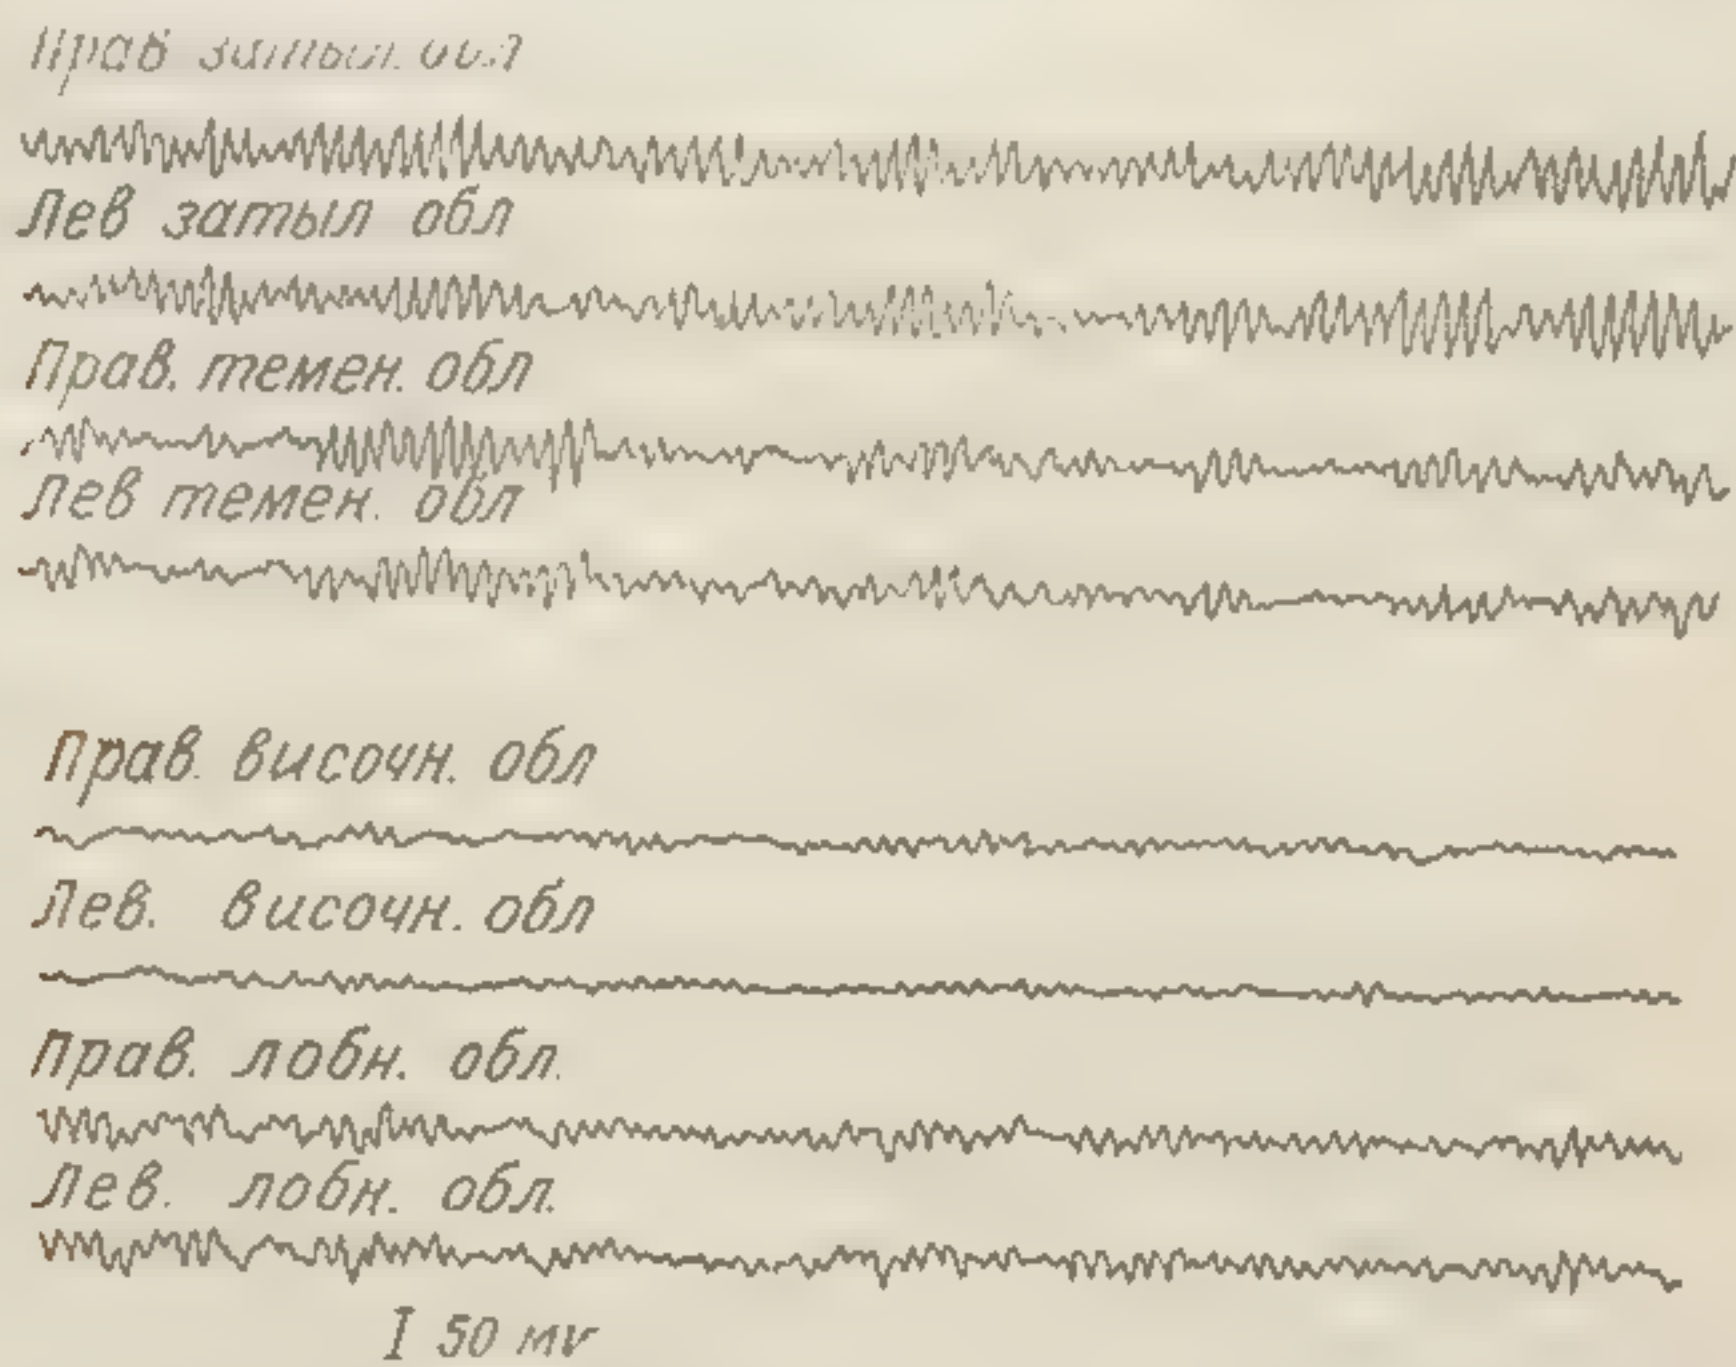 Прав затыл. обл
Лев затыл обл
Прав. темен. обл
Лев темен. обл
Прав. височн. обл
Лев. височн. обл
Прав. лобн. обл.
Лев. лобн. обл.
I 50 мv